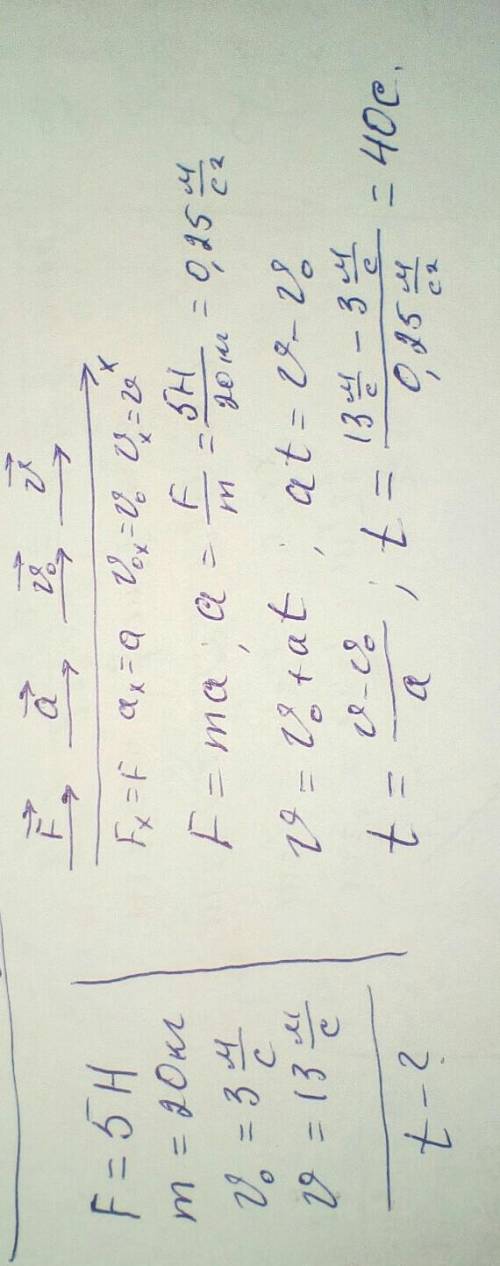 F = 5Н
m = 20кг
v₀ = 3 м/с
v = 13 м/с
t - ?
F⃗ a⃗ v⃗₀ v⃗
x
Fₓ = F aₓ = a v₀ₓ = v₀ vₓ = v
F = ma; a = F/m = 5Н/20кг = 0,25 м/с²
v = v₀ + at; at = v - v₀
t = (v - v₀)/a; t = (13 м/с - 3 м/с)/(0,25 м/с²) = 40с.